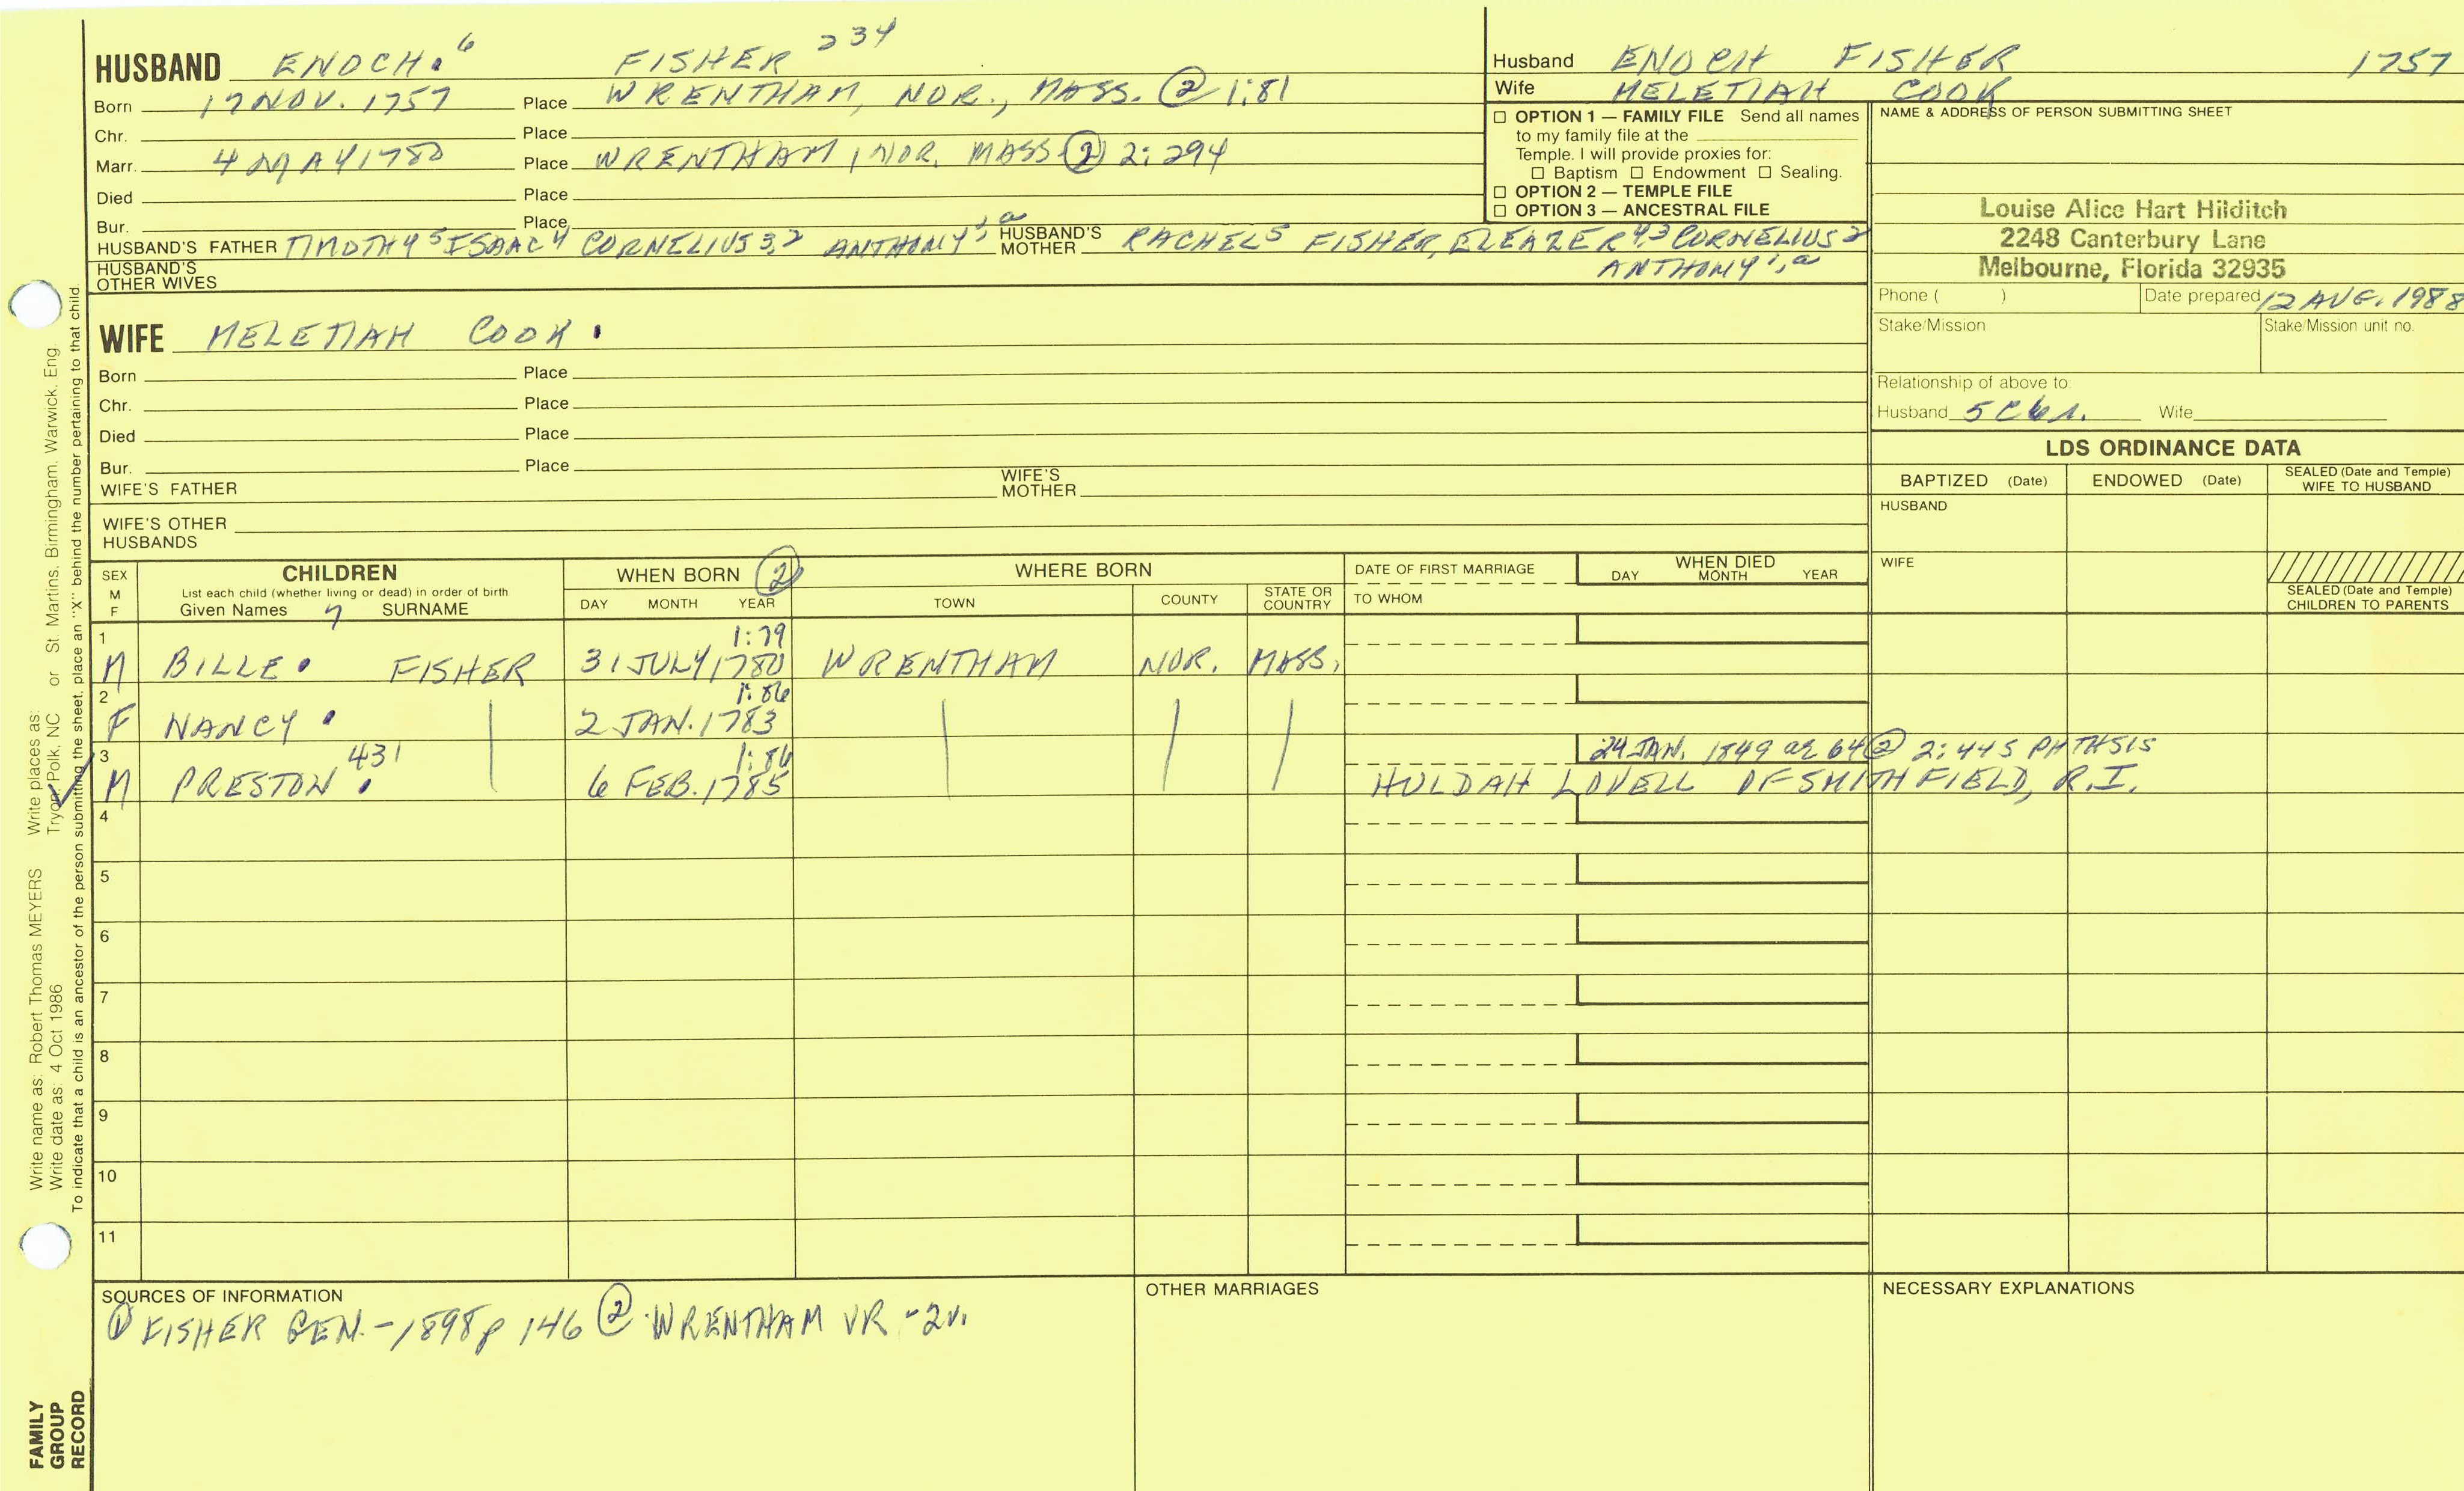 HUSBAND ENOCH.6 FISHER 234
Born 17 NOV. 1757 Place WRENTHAM, NOR., MASS. ② 1:81
Chr. Place
Marr. 4 MAY 1780 Place WRENTHAM, NOR. MASS ② 2:294
Died Place
Bur. Place
HUSBAND'S FATHER TIMOTHY5 ISAAC4 CORNELIUS3,2 ANTHONY1,a HUSBAND'S MOTHER RACHEL5 FISHER, ELEAZER4,3 CORNELIUS2
ANTHONY1,a
HUSBAND'S OTHER WIVES
Husband ENOCH FISHER 1757
Wife MELETIAH COOK
☐ OPTION 1 — FAMILY FILE Send all names
to my family file at the
Temple. I will provide proxies for:
☐ Baptism ☐ Endowment ☐ Sealing.
☐ OPTION 2 — TEMPLE FILE
☐ OPTION 3 — ANCESTRAL FILE
NAME & ADDRESS OF PERSON SUBMITTING SHEET
Louise Alice Hart Hilditch
2248 Canterbury Lane
Melbourne, Florida 32935
Phone ( ) Date prepared 12 AUG. 1988
Stake/Mission Stake/Mission unit no.
Relationship of above to:
Husband Wife
WIFE MELETIAH COOK.
Born Place
Chr. Place
Died Place
Bur. Place
WIFE'S FATHER WIFE'S MOTHER
WIFE'S OTHER HUSBANDS
LDS ORDINANCE DATA
BAPTIZED (Date) ENDOWED (Date) SEALED (Date and Temple) WIFE TO HUSBAND
HUSBAND
WIFE
SEALED (Date and Temple) CHILDREN TO PARENTS
SEX M F
CHILDREN
List each child (whether living or dead) in order of birth
Given Names 7 SURNAME
WHEN BORN ②
DAY MONTH YEAR
WHERE BORN
TOWN COUNTY STATE OR COUNTRY
DATE OF FIRST MARRIAGE
TO WHOM
WHEN DIED
DAY MONTH YEAR
1 1:79
M BILLE. FISHER 31 JULY 1780 WRENTHAM NOR. MASS.
2 1:86
F NANCY. | 2 JAN. 1783 | | |
3 431 1:86 24 JAN. 1849 ae 64 ② 2:445 PHTHSIS
M PRESTON. 6 FEB. 1785 HULDAH LOVELL OF SMITHFIELD, R.I.
4
5
6
7
8
9
10
11
SOURCES OF INFORMATION
① FISHER GEN. - 1898 p 146 ② WRENTHAM VR - 2v.
OTHER MARRIAGES
NECESSARY EXPLANATIONS
Write name as: Robert Thomas MEYERS Write places as: Tryon, Polk, NC or St. Martins, Birmingham, Warwick, Eng
Write date as: 4 Oct 1986
To indicate that a child is an ancestor of the person submitting the sheet, place an "X" behind the number pertaining to that child.
FAMILY
GROUP
RECORD